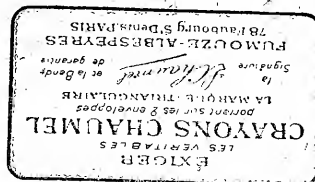 EXIGER
LES VÉRITABLES
CRAYONS CHAUMEL
portent sur les 2 enveloppes
LA MARQUE-TRIANGULAIRE
la Signature Chaumel et la Bande de garantie
FUMOUZE-ALBESPEYRES
78 Faubourg St Denis. PARIS